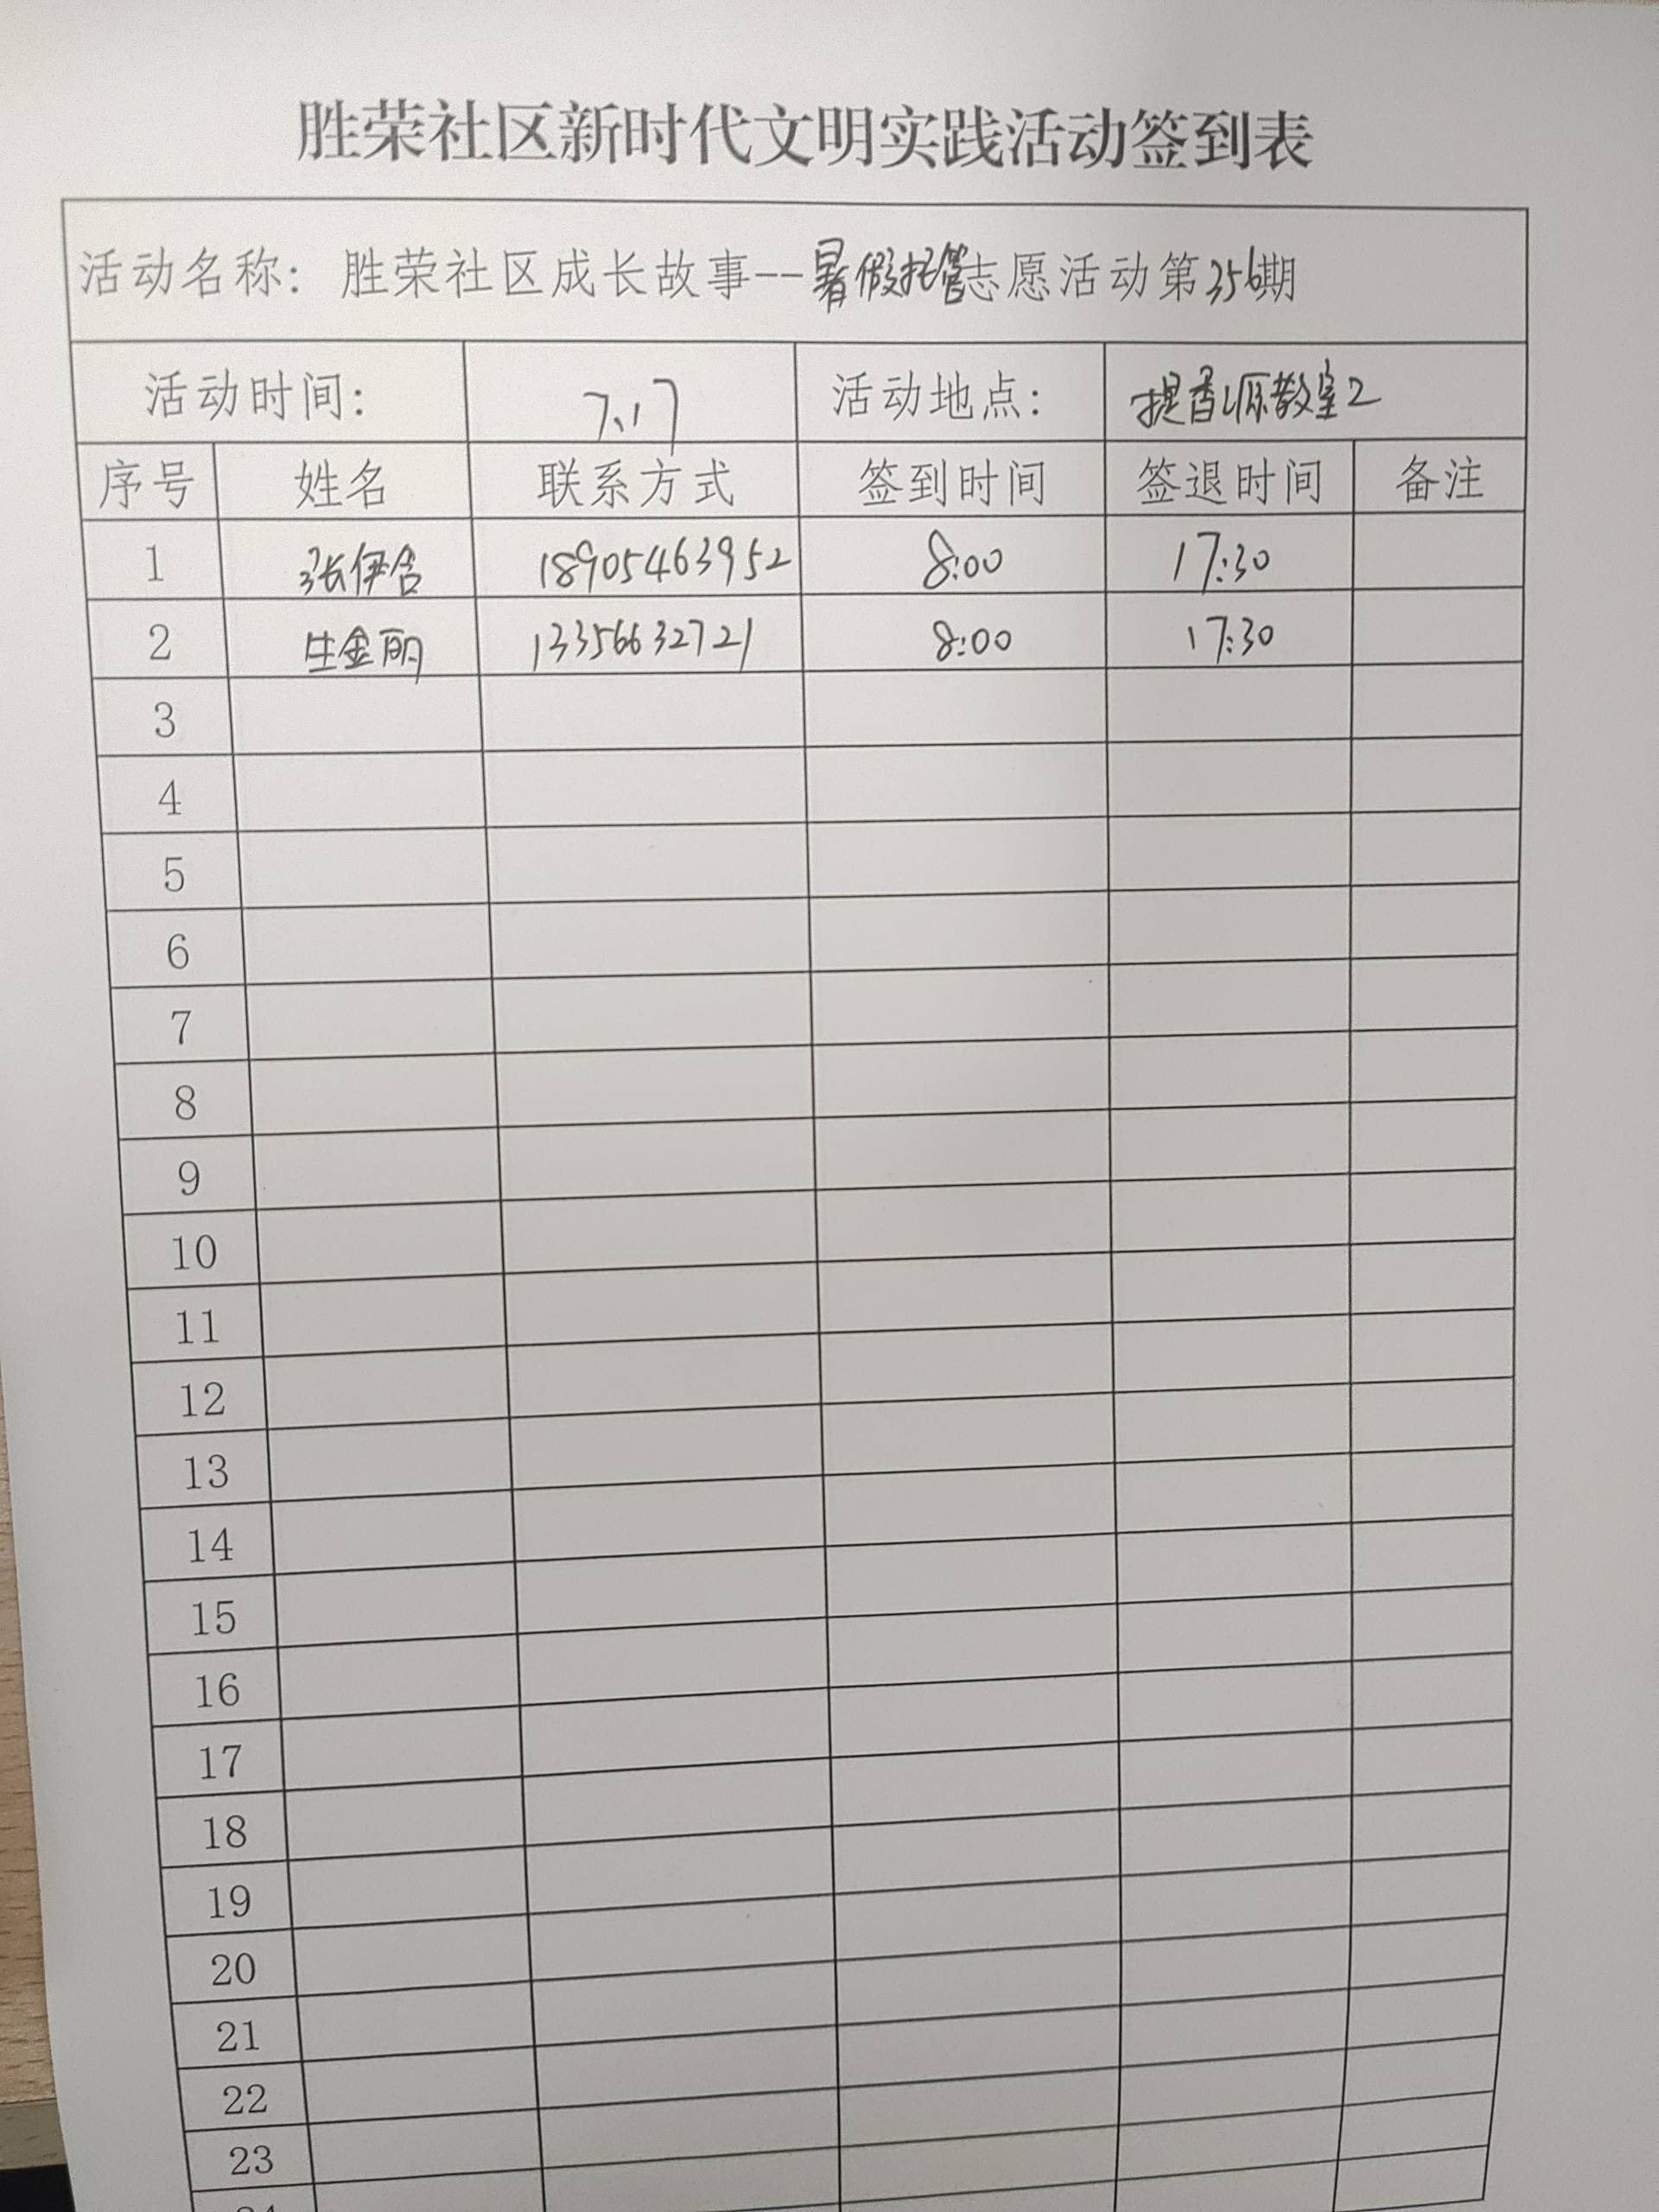 胜荣社区新时代文明实践活动签到表
活动名称：胜荣社区成长故事--暑假托管志愿活动第356期
活动时间： 7.17 活动地点： 提香源教室2
序号 姓名 联系方式 签到时间 签退时间 备注
1 张伊含 18905463952 8:00 17:30
2 生金丽 13356632721 8:00 17:30
3
4
5
6
7
8
9
10
11
12
13
14
15
16
17
18
19
20
21
22
23